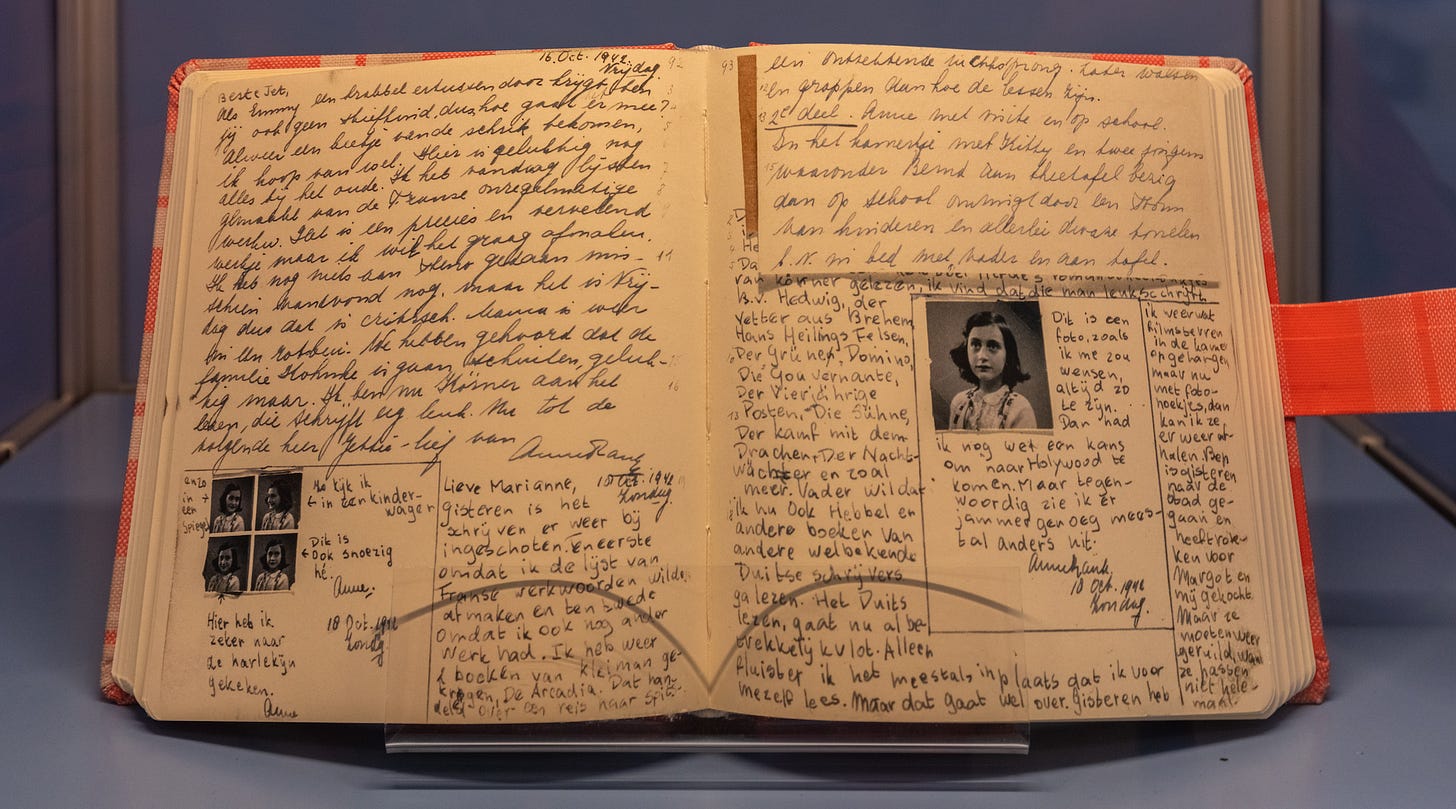 16. Oct. 1942
Vrijdag
Beste Jet,
Als Emmy een krabbel ertussen door krijgt, ben
jij ook geen stiefkind, dus hoe gaat er mee?
Alweer een beetje van de schrik bekomen,
ik hoop van wel. Hier is gelukkig nog
alles bij het oude. Ik heb vandaag lijsten
gemaakt van de Franse onregelmatige
werkw. Het is een precies en vervelend
werkje maar ik wil het graag afmaken.
Ik heb nog niets aan steno gedaan mis-
schien vanavond nog, maar het is Vrij-
dag dus dat is critisch. Mama is weer
in een rotbui. We hebben gehoord dat de
familie is gaan schuilen, geluk-
kig maar. Ik ben nu Körner aan het
lezen, die schrijft erg leuk. Nu tot de
volgende keer Jettie-lief van
Anne Frank
anzo
in
een
spiegel
Nu kijk ik
in een kinder-
wagen
Dit is
ook snoezig
hé.
Anne.
18 Oct. 1942
Zondag
Hier heb ik
zeker naar
de harlekijn
gekeken.
Anne
Lieve Marianne,
18 Oct. 1942
Zondag.
Gisteren is het
schrijven er weer bij
ingeschoten. Ten eerste
omdat ik de lijst van
Franse werkwoorden wilde
afmaken en ten twede
omdat ik ook nog ander
werk had. Ik heb weer
2 boeken van kleiman ge-
kregen, De Arcadia. Dat han-
delt over een reis naar Spits-
92
93
een ontzettende luchtsprong. Later walsen
en grappen aan hoe de lessen zijn.
2e deel. Anne met visite en op school.
In het kamertje met Kitty en twee jongens
waaronder Bernd aan theetafel bezig
dan op school omringd door een
van kinderen en allerlei dwaze
b.v. in bed met vader en aan tafel.
van körner gelezen, ik vind dat die man leuk schrijft
B.v. Hedwig, der
Vetter aus Brehem,
Hans Heilings Felsen,
Der Grüner, Domino,
Die Gouvernante,
Der Vierjährige
Posten, Die Sühne,
Der kamf mit dem
Drachen, Der Nacht-
wächter en zoal
meer. Vader wil dat
ik nu ook Hebbel en
andere boeken van
andere welbekende
Duitse schrijvers
ga lezen. Het Duits
lezen, gaat nu al be-
trekkelijk vlot. Alleen
fluister ik het meestals inplaats dat ik voor
mezelf lees. Maar dat gaat wel over. Gisteren heb
Dit is een
foto, zoals
ik me zou
wensen,
altijd zo
te zijn.
Dan had
ik nog wel een kans
om naar Holywood te
komen. Maar tegen-
woordig zie ik er
jammer genoeg mees-
tal anders uit.
Anne Frank.
18 Oct. 1942
Zondag.
ik weer wat
filmsterren
in de kamer
opgehangen
maar nu
met foto-
hoekjes, dan
kan ik ze
er weer af-
halen. Bep
is gisteren
naar de
stad ge-
gaan en
heeft rok-
ken voor
Margot en
mij gekocht.
Maar ze
moeten weer
geruild, want
ze passen
niet hele-
maal.